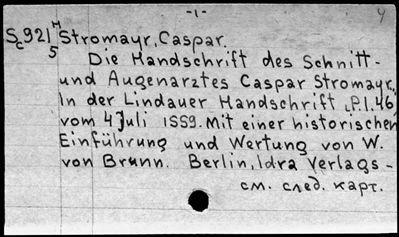 -1-
4
Sc921 H/5 Stromayr, Caspar.
Die Handschrift des Schnitt-
und Augenarztes Caspar Stromayr.
In der Lindauer Handschrift (P.I.46)
vom 4 Juli 1559. Mit einer historischen
Einführung und Wertung von W.
von Brunn. Berlin, Idra Verlags-
см. след. карт.